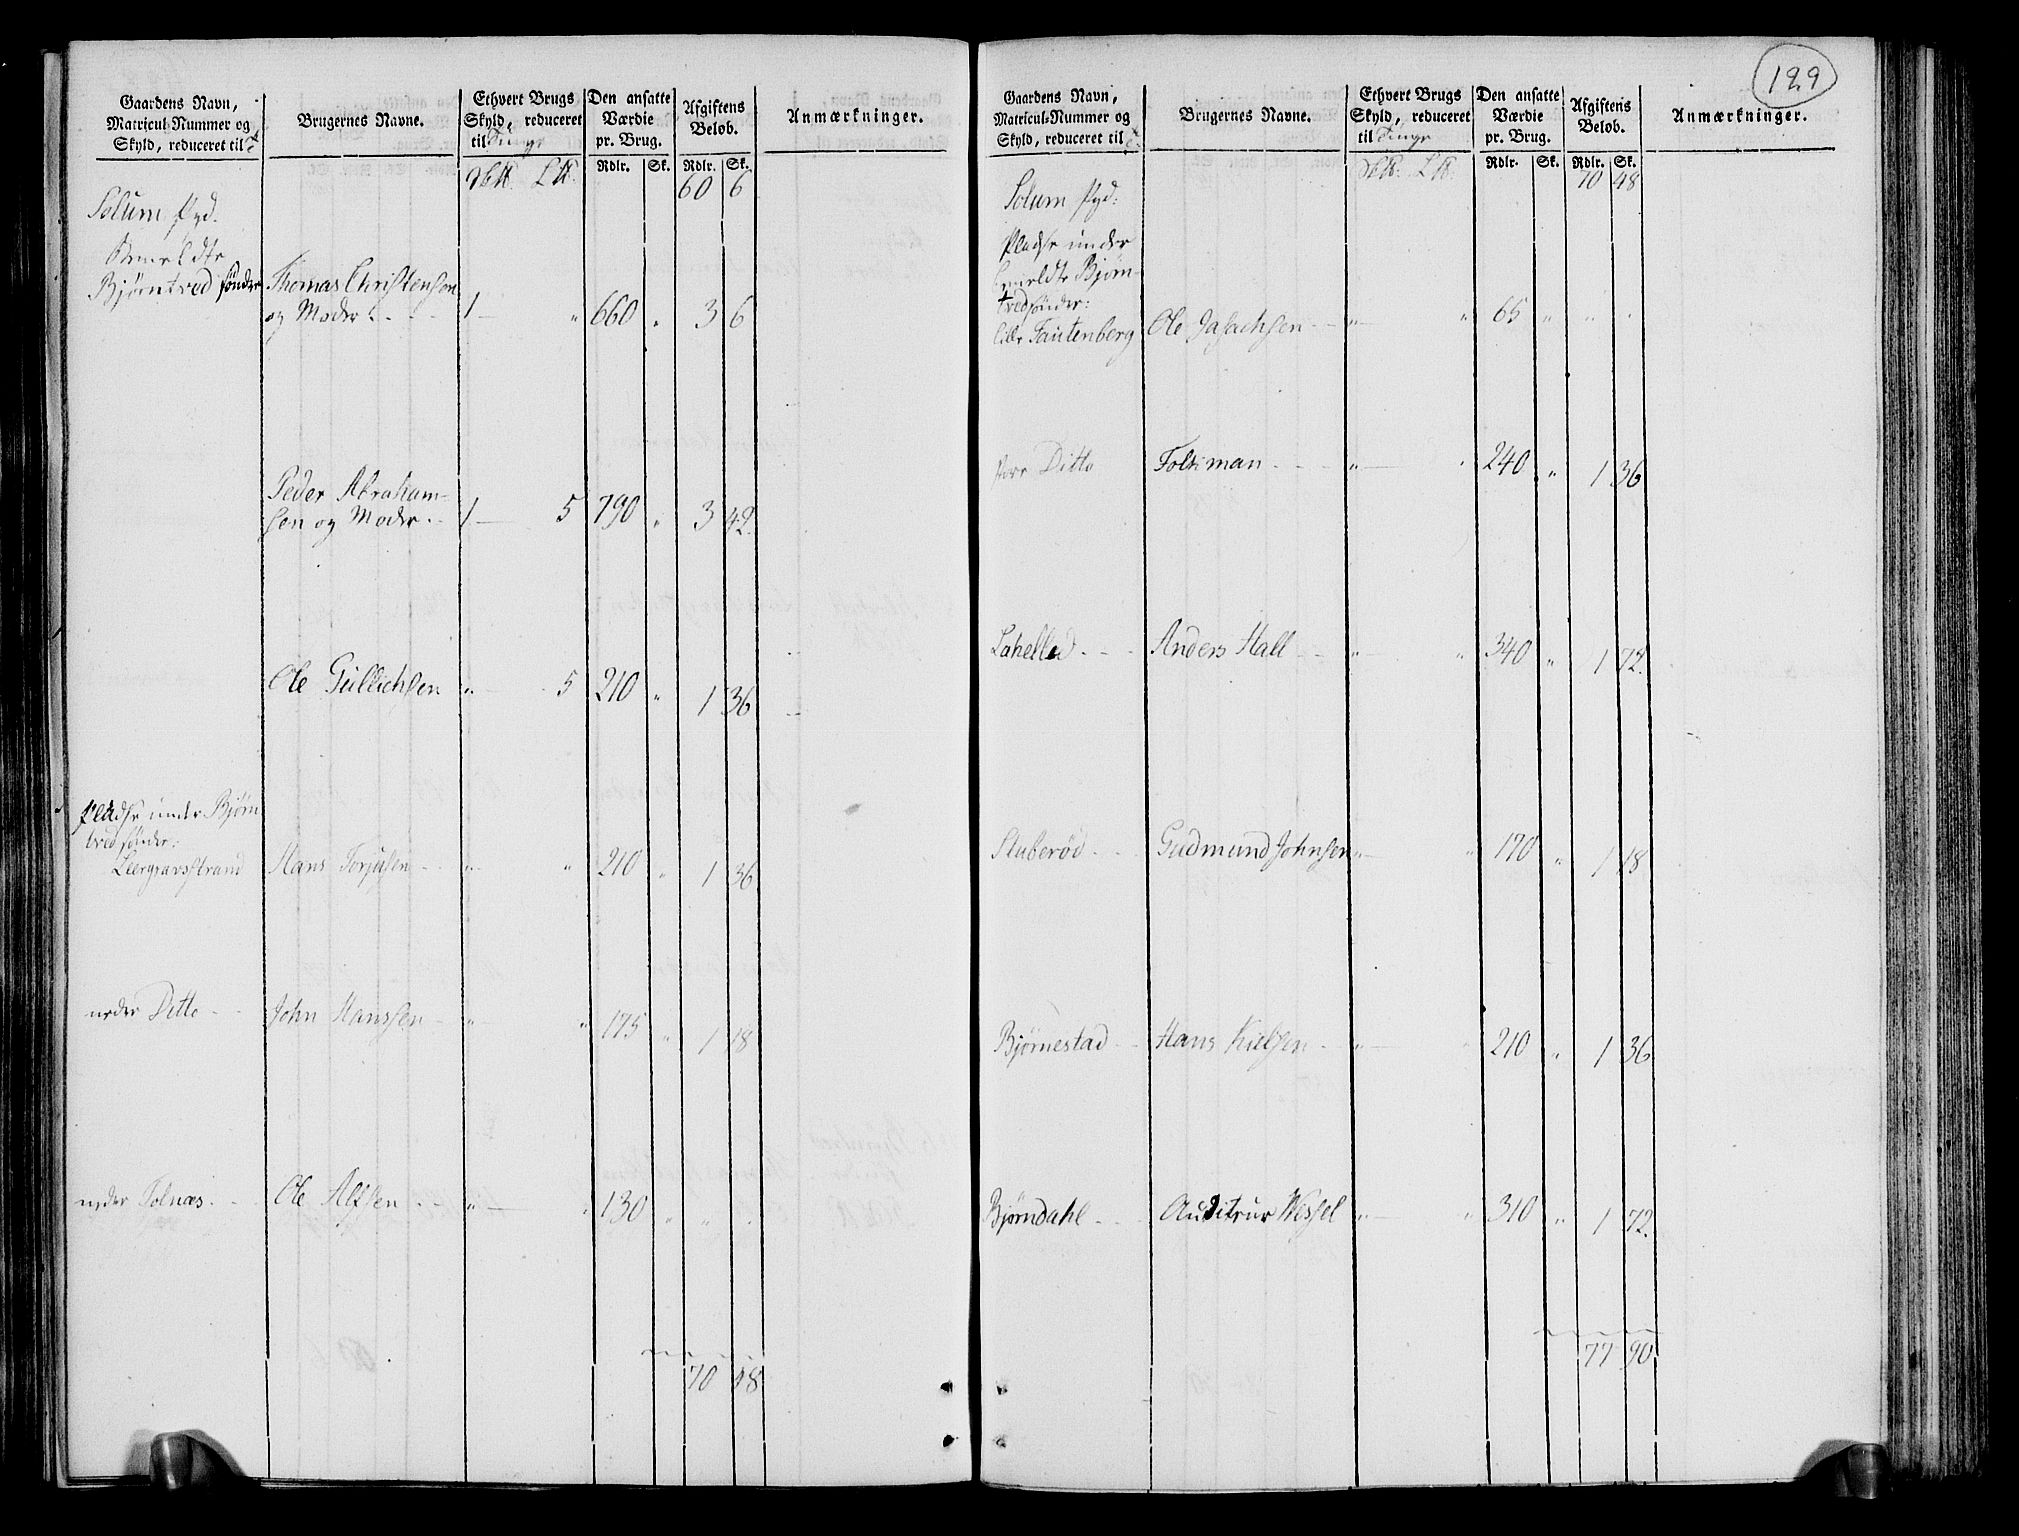 129
Gaardens Navn, Matricul-Nummer og Skyld, reduceret til
Brugernes Navne.
Ethvert Brugs Skyld, reduceret til Tunge
Den ansatte Værdie pr. Brug.
Afgiftens Beløb.
Anmærkninger.
Rdlr. Sk. Rdlr. Sk.
60 6
Solum Pgd.
Anmeldte
Bjørntved sønder Thomas Christensen
og Moder 1 " 660 " 3 6
Peder Abraham-
sen og Moder 1 5 790 " 3 42
Ole Gullichsen " 5 210 " 1 36
Pladse under Bjørn
tved sønder:
Leergravsstrand Hans Torjusen " " 210 " 1 36
neder Ditto John Hanssen " " 175 " 1 18
neder Tolnæs Ole Alfsen " " 130 " " "
70 48
Gaardens Navn, Matricul-Nummer og Skyld, reduceret til
Brugernes Navne.
Ethvert Brugs Skyld, reduceret til Tunge
Den ansatte Værdie pr. Brug.
Afgiftens Beløb.
Anmærkninger.
Rdlr. Sk. Rdlr. Sk.
70 48
Solum Pgd:
Pladse under
bemeldte Bjørn-
tved sønder:
lille Tautenberg Ole Jasachsen " " 65 " " "
store Ditto Foltsman " " 240 " 1 36
Lahelled Anders Hall " " 340 " 1 72
Stuberød Gudmund Johnsen " " 170 " 1 18
Bjørnestad Hans Kielsen " " 210 " 1 36
Bjørndahl Auditeur Wessel " " 310 " 1 72
77 90